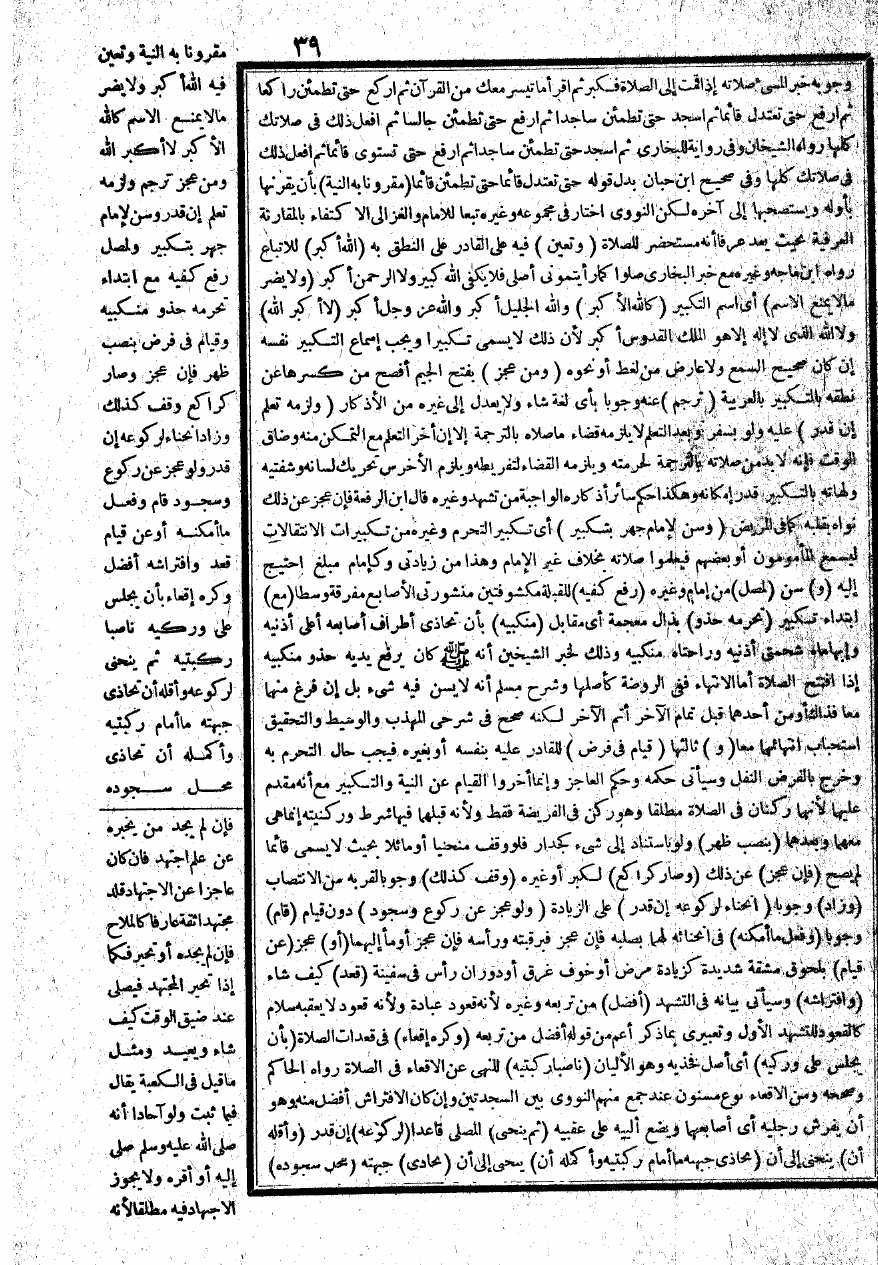 ٣٩
وجوبه خبر المسىء صلاته إذا قمت إلى الصلاة فكبر ثم اقرأ ما تيسر معك من القرآن ثم اركع حتى تطمئن راكعا
ثم ارفع حتى تعتدل قائما ثم اسجد حتى تطمئن ساجدا ثم ارفع حتى تطمئن جالسا ثم افعل ذلك فى صلاتك
كلها رواه الشيخان وفى رواية للبخارى ثم اسجد حتى تطمئن ساجدا ثم ارفع حتى تستوى قائما ثم افعل ذلك
فى صلاتك كلها وفى صحيح ابن حبان بدل قوله حتى تعتدل قائما حتى تطمئن قائما (مقرونا به النية) بأن يقرنها
بأوله ويستصحبها إلى آخره لكن النووى اختار فى مجموعه وغيره تبعا للامام والغزالى الاكتفاء بالمقارنة
العرفية بحيث يعد عرفا أنه مستحضر للصلاة ( وتعين ) فيه على القادر على النطق به (الله أكبر) للاتباع
رواه ابن ماجه وغيره مع خبر البخارى صلوا كما رأيتمونى أصلى فلا يكفى الله كبير ولا الرحمن أكبر (ولا يضر
مالا يمنع الاسم) أى اسم التكبير (كالله الأكبر ) والله الجليل أكبر والله عز وجل أكبر (لا أكبر الله)
ولا الله الذى لا إله إلا هو الملك القدوس أكبر لأن ذلك لا يسمى تكبيرا ويجب إسماع التكبير نفسه
إن كان صحيح السمع ولا عارض من لغط أو نحوه ( ومن عجز ) بفتح الجيم أفصح من كسرها عن
نطقه بالتكبير بالعربية ( ترجم )عنه وجوبا بأى لغة شاء ولا يعدل إلى غيره من الأذكار ( ولزمه تعلم
إن قدر ) عليه ولو بسفر وبعد التعلم لا يلزمه قضاء ما صلاه بالترجمة إلا إن أخر التعلم مع التمكن منه وضاق
الوقت فإنه لا بد من صلاته بالترجمة لحرمته ويلزمه القضاء لتفريطه ويلزم الأخرس تحريك لسانه وشفتيه
ولهاته بالتكبير قدر إمكانه وهكذا حكم سائر أذكاره الواجبة من تشهد وغيره قال ابن الرفعة فإن عجز عن ذلك
نواه بقلبه كما فى المريض ( وسن لإمام جهر بتكبير ) أى تكبير التحرم وغيره من تكبيرات الانتقالات
ليسمع المأمومون أو بعضهم فيعلموا صلاته بخلاف غير الإمام وهذا من زيادتى وكإمام مبلغ احتيج
إليه (و) سن (لمصل)من إمام وغيره (رفع كفيه)للقبلة مكشوفتين منشورتى الأصابع مفرقة وسطا(مع)
ابتداء تكبير (تحرمه حذو) بذال معجمة أى مقابل (منكبيه) بأن تحاذى أطراف أصابعه أعلى أذنيه
وإبهاماه شحمتى أذنيه وراحتاه منكبيه وذلك لخبر الشيخين أنه ﷺ كان يرفع يديه حذو منكبيه
إذا افتتح الصلاة أما الانتهاء ففى الروضة كأصلها وشرح مسلم أنه لا يسن فيه شىء بل إن فرغ منهما
معا فذاك أو من أحدهما قبل تمام الآخر أتم الآخر لكنه صحح فى شرحى المهذب والوسيط والتحقيق
استحباب انتهائهما معا( و ) ثالثها ( قيام فى فرض ) للقادر عليه بنفسه أو بغيره فيجب حال التحرم به
وخرج بالفرض النفل وسيأتى حكمه وحكم العاجز وإنما أخروا القيام عن النية والتكبير مع أنه مقدم
عليهما لأنهما ركنان فى الصلاة مطلقا وهو ركن فى الفريضة فقط ولأنه قبلهما فيها شرط وركنيته إنما هى
معهما وبعدهما (بنصب ظهر) ولو باستناد إلى شىء كجدار فلو وقف منحنيا أو مائلا بحيث لا يسمى قائما
لم يصح (فإن عجز) عن ذلك (وصار كراكع) لكبر أو غيره (وقف كذلك) وجوبا لقربه من الانتصاب
(وزاد) وجوبا ( انحناء لركوعه إن قدر ) على الزيادة ( ولو عجز عن ركوع وسجود ) دون قيام (قام)
وجوبا (وفعل ما أمكنه) فى انحنائه لهما بصلبه فإن عجز فبرقبته ورأسه فإن عجز أومأ إليهما(أو) عجز(عن
قيام) بلحوق مشقة شديدة كزيادة مرض أو خوف غرق أو دوران رأس فى سفينة (قعد) كيف شاء
(وافتراشه) وسيأتى بيانه فى التشهد (أفضل) من تربعه وغيره لأنه قعود عبادة ولأنه قعود لا يعقبه سلام
كالقعود للتشهد الأول وتعبيرى بما ذكر أعم من قوله أفضل من تربعه (وكره إقعاء) فى قعدات الصلاة(بأن
يجلس على وركيه) أى أصل فخذيه وهو الأليان (ناصبا ركبتيه) للنهى عن الاقعاء فى الصلاة رواه الحاكم
وصححه ومن الاقعاء نوع مسنون عند جمع منهم النووى بين السجدتين وإن كان الافتراش أفضل منه وهو
أن يفرش رجليه أى أصابعهما ويضع أليه على عقبيه (ثم ينحنى) المصلى قاعدا(لركوعه)إن قدر (وأقله
أن) ينحنى إلى أن (تحاذى جبهته ما أمام ركبتيه وأكمله أن) ينحنى إلى أن (تحاذى) جبهته (محل سجوده)
مقرونا به النية وتعين
فيه الله أكبر ولا يضر
مالا يمنع الاسم كالله
الأكبر لا أكبر الله
ومن عجز ترجم ولزمه
تعلم إن قدر وسن لإمام
جهر بتكبير ولمصل
رفع كفيه مع ابتداء
تحرمه حذو منكبيه
وقيام فى فرض بنصب
ظهر فإن عجز وصار
كراكع وقف كذلك
وزاد انحناء لركوعه إن
قدر ولو عجز عن ركوع
وسجود قام وفعل
ما أمكنه أو عن قيام
قعد وافتراشه أفضل
وكره إقعاء بأن يجلس
على وركيه ناصبا
ركبتيه ثم ينحنى
لركوعه وأقله أن تحاذى
جبهته ما أمام ركبتيه
وأكمله أن تحاذى
محل سجوده
فإن لم يجد من يخبره
عن علم اجتهد فان كان
عاجزا عن الاجتهاد قلد
مجتهدا ثقة عارفا كالملاح
فإن لم يجده أو تحير فكما
إذا تحير المجتهد فيصلى
عند ضيق الوقت كيف
شاء ويعيد ومثل
ما قيل فى الكعبة يقال
فيما ثبت ولو آحادا أنه
صلى الله عليه وسلم صلى
إليه أو أقره ولا يجوز
الاجتهاد فيه مطلقا لأنه